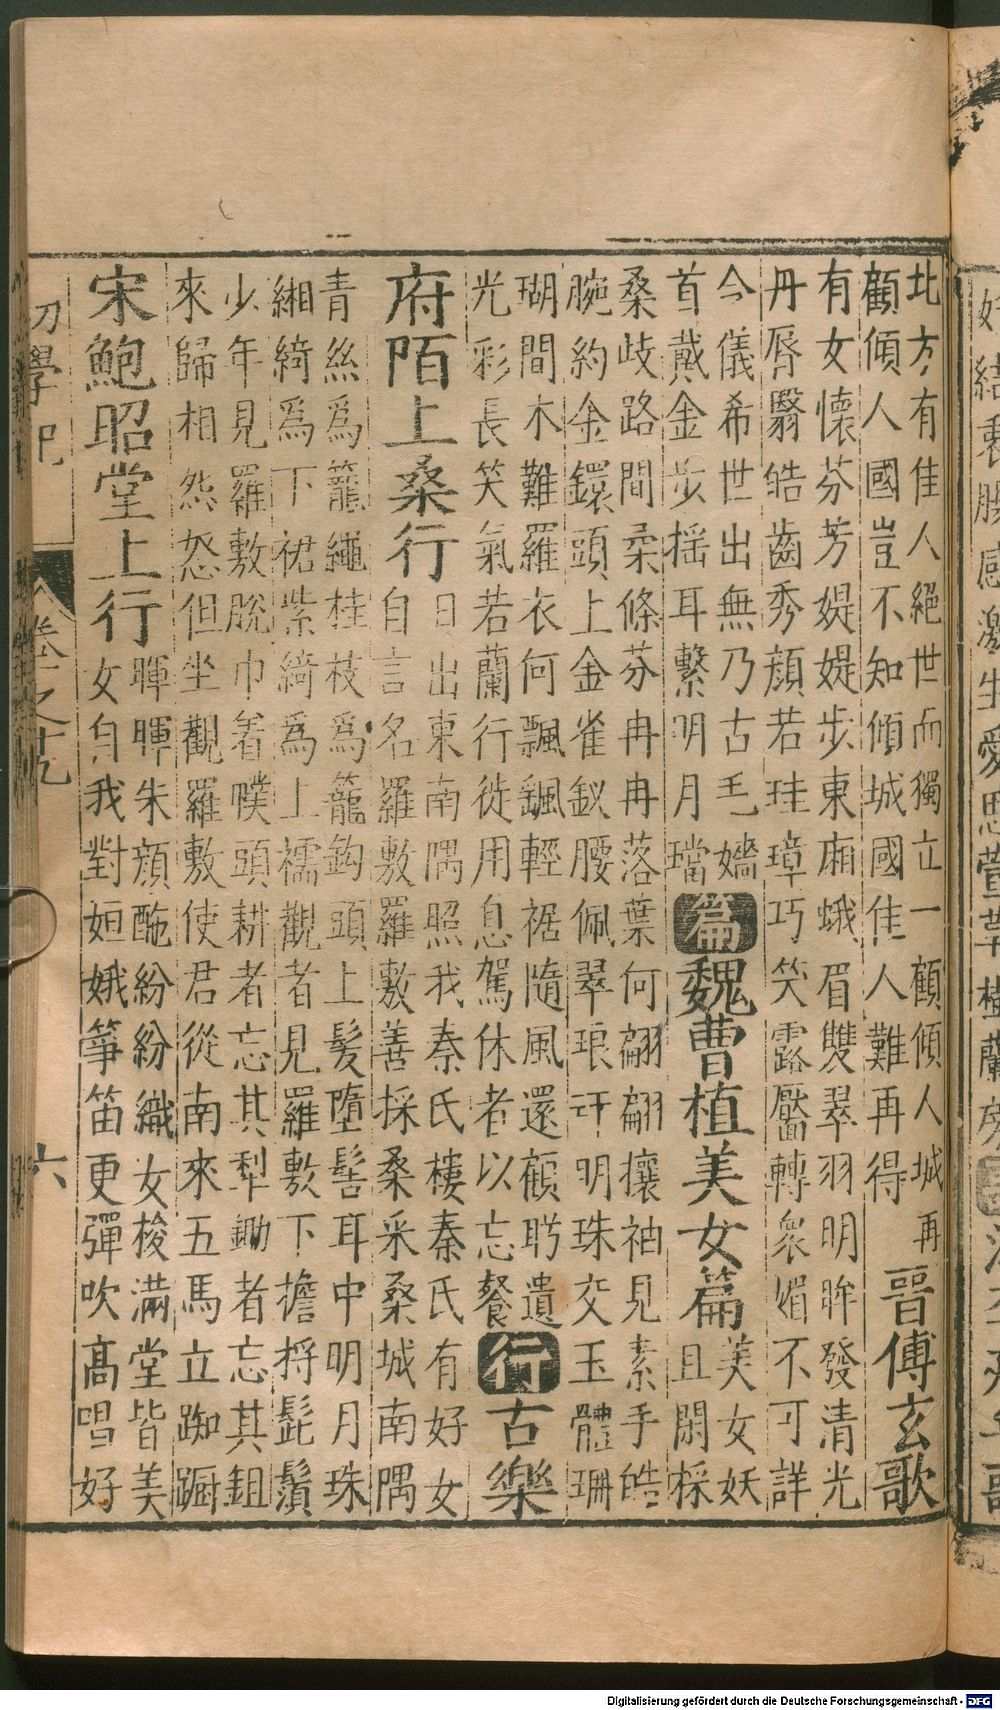 北方有佳人絕世而獨立一顧傾人城再
顧傾人國豈不知傾城國佳人難再得
晉傅玄歌
有女懷芬芳媞媞步東廂蛾眉雙翠羽明眸發清光
丹唇翳皓齒秀顏若珪璋巧笑露靨轉衆媚不可詳
今儀希世出無乃古毛嬙
首戴金步搖耳繫明月璫
篇魏曹植美女篇
美女妖
且閑採
桑歧路間柔條芬冉冉落葉何翩翩攘袖見素手皓
腕約金鐶頭上金雀釵腰佩翠琅玕明珠交玉體珊
瑚間木難羅衣何飄颻輕裾隨風還顧眄遺
光彩長笑氣若蘭行徒用息駕休者以忘餐
行古樂
府陌上桑行
日出東南隅照我秦氏樓秦氏有好女
自言名羅敷羅敷善採桑采桑城南隅
青絲為籠繩桂枝為籠鈎頭上髮墮髻耳中明月珠
緗綺為下裙紫綺為上襦觀者見羅敷下擔捋髭鬚
少年見羅敷脫巾着幞頭耕者忘其犁鋤者忘其鉏
來歸相怨怒但坐觀羅敷使君從南來五馬立踟躕
宋鮑昭堂上行
暉暉朱顏酡紛紛織女梭滿堂皆美
女自我對姮娥箏笛更彈吹高唱好
初學記 卷之十九 六
Digitalisierung gefördert durch die Deutsche Forschungsgemeinschaft - DFG